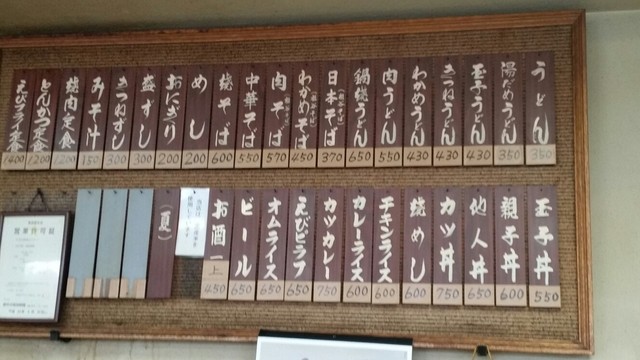 うどん 350
湯だめうどん 350
玉子うどん 430
きつねうどん 430
わかめうどん 430
肉うどん 550
鍋焼うどん 650
日本そば 370
わかめそば 450
肉そば 570
中華そば 550
焼そば 600
めし 200
おにぎり 200
盛ずし 300
きつねずし 300
みそ汁 150
焼肉定食 1200
とんかつ定食 1200
えびフライ定食 1400
玉子丼 550
親子丼 600
他人丼 650
カツ丼 750
焼めし 600
チキンライス 600
カレーライス 600
カツカレー 750
えびピラフ 650
オムライス 650
ビール 650
お酒一 上 450
(夏)
営業許可証